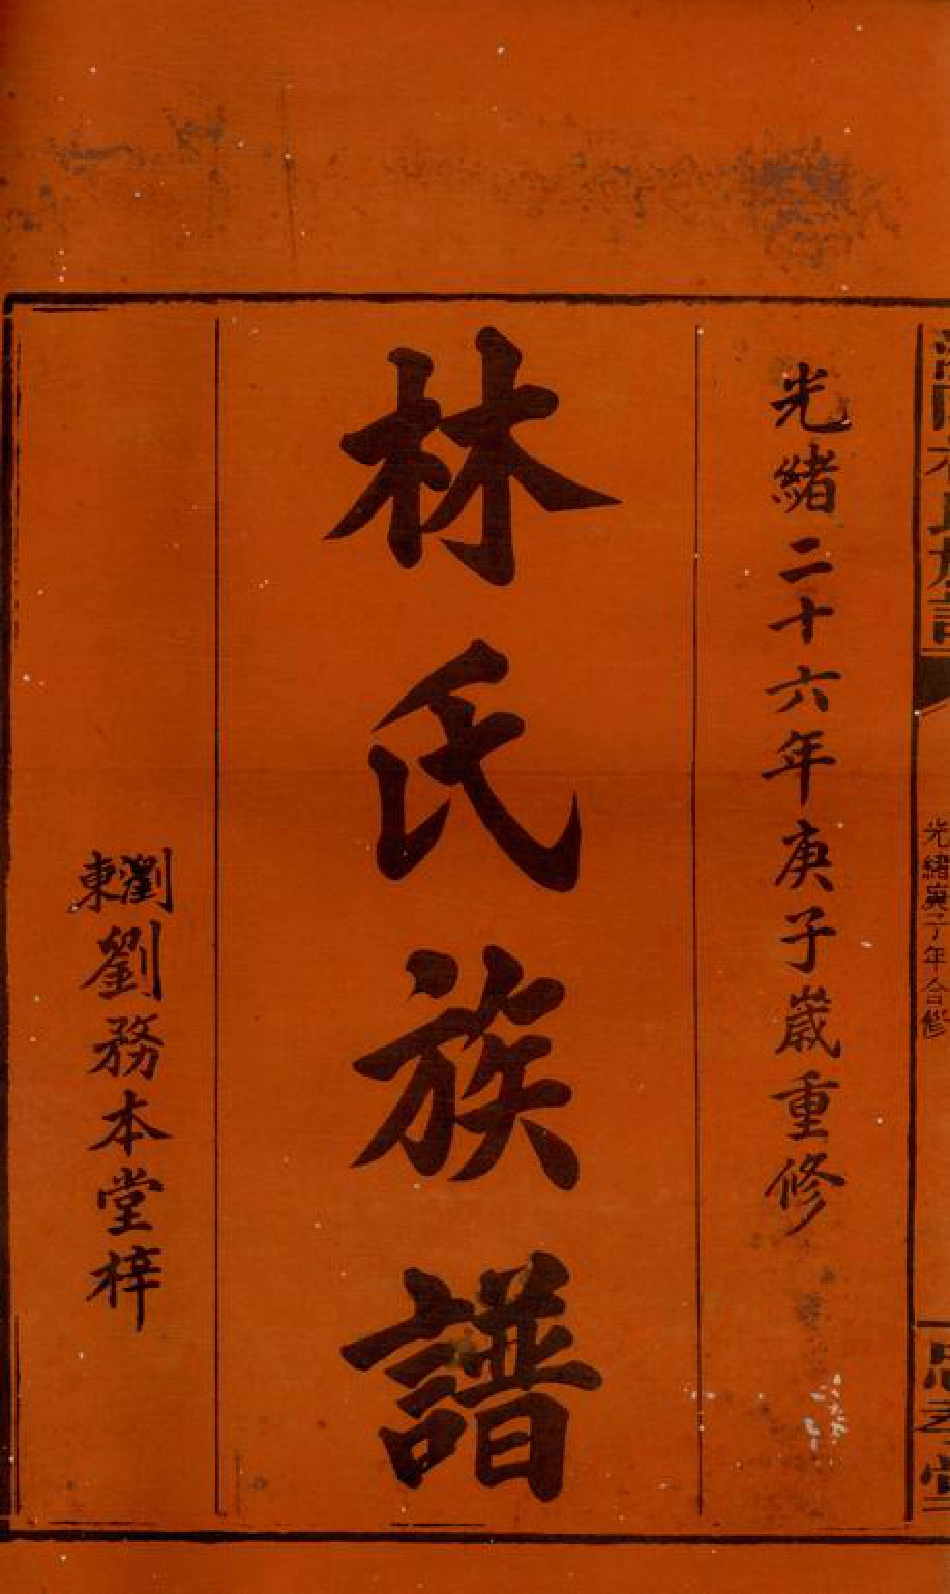 光緒二十六年庚子歲重修
林氏族譜
瀏東劉務本堂梓
林氏族譜
光緒庚子年合修
忠孝堂